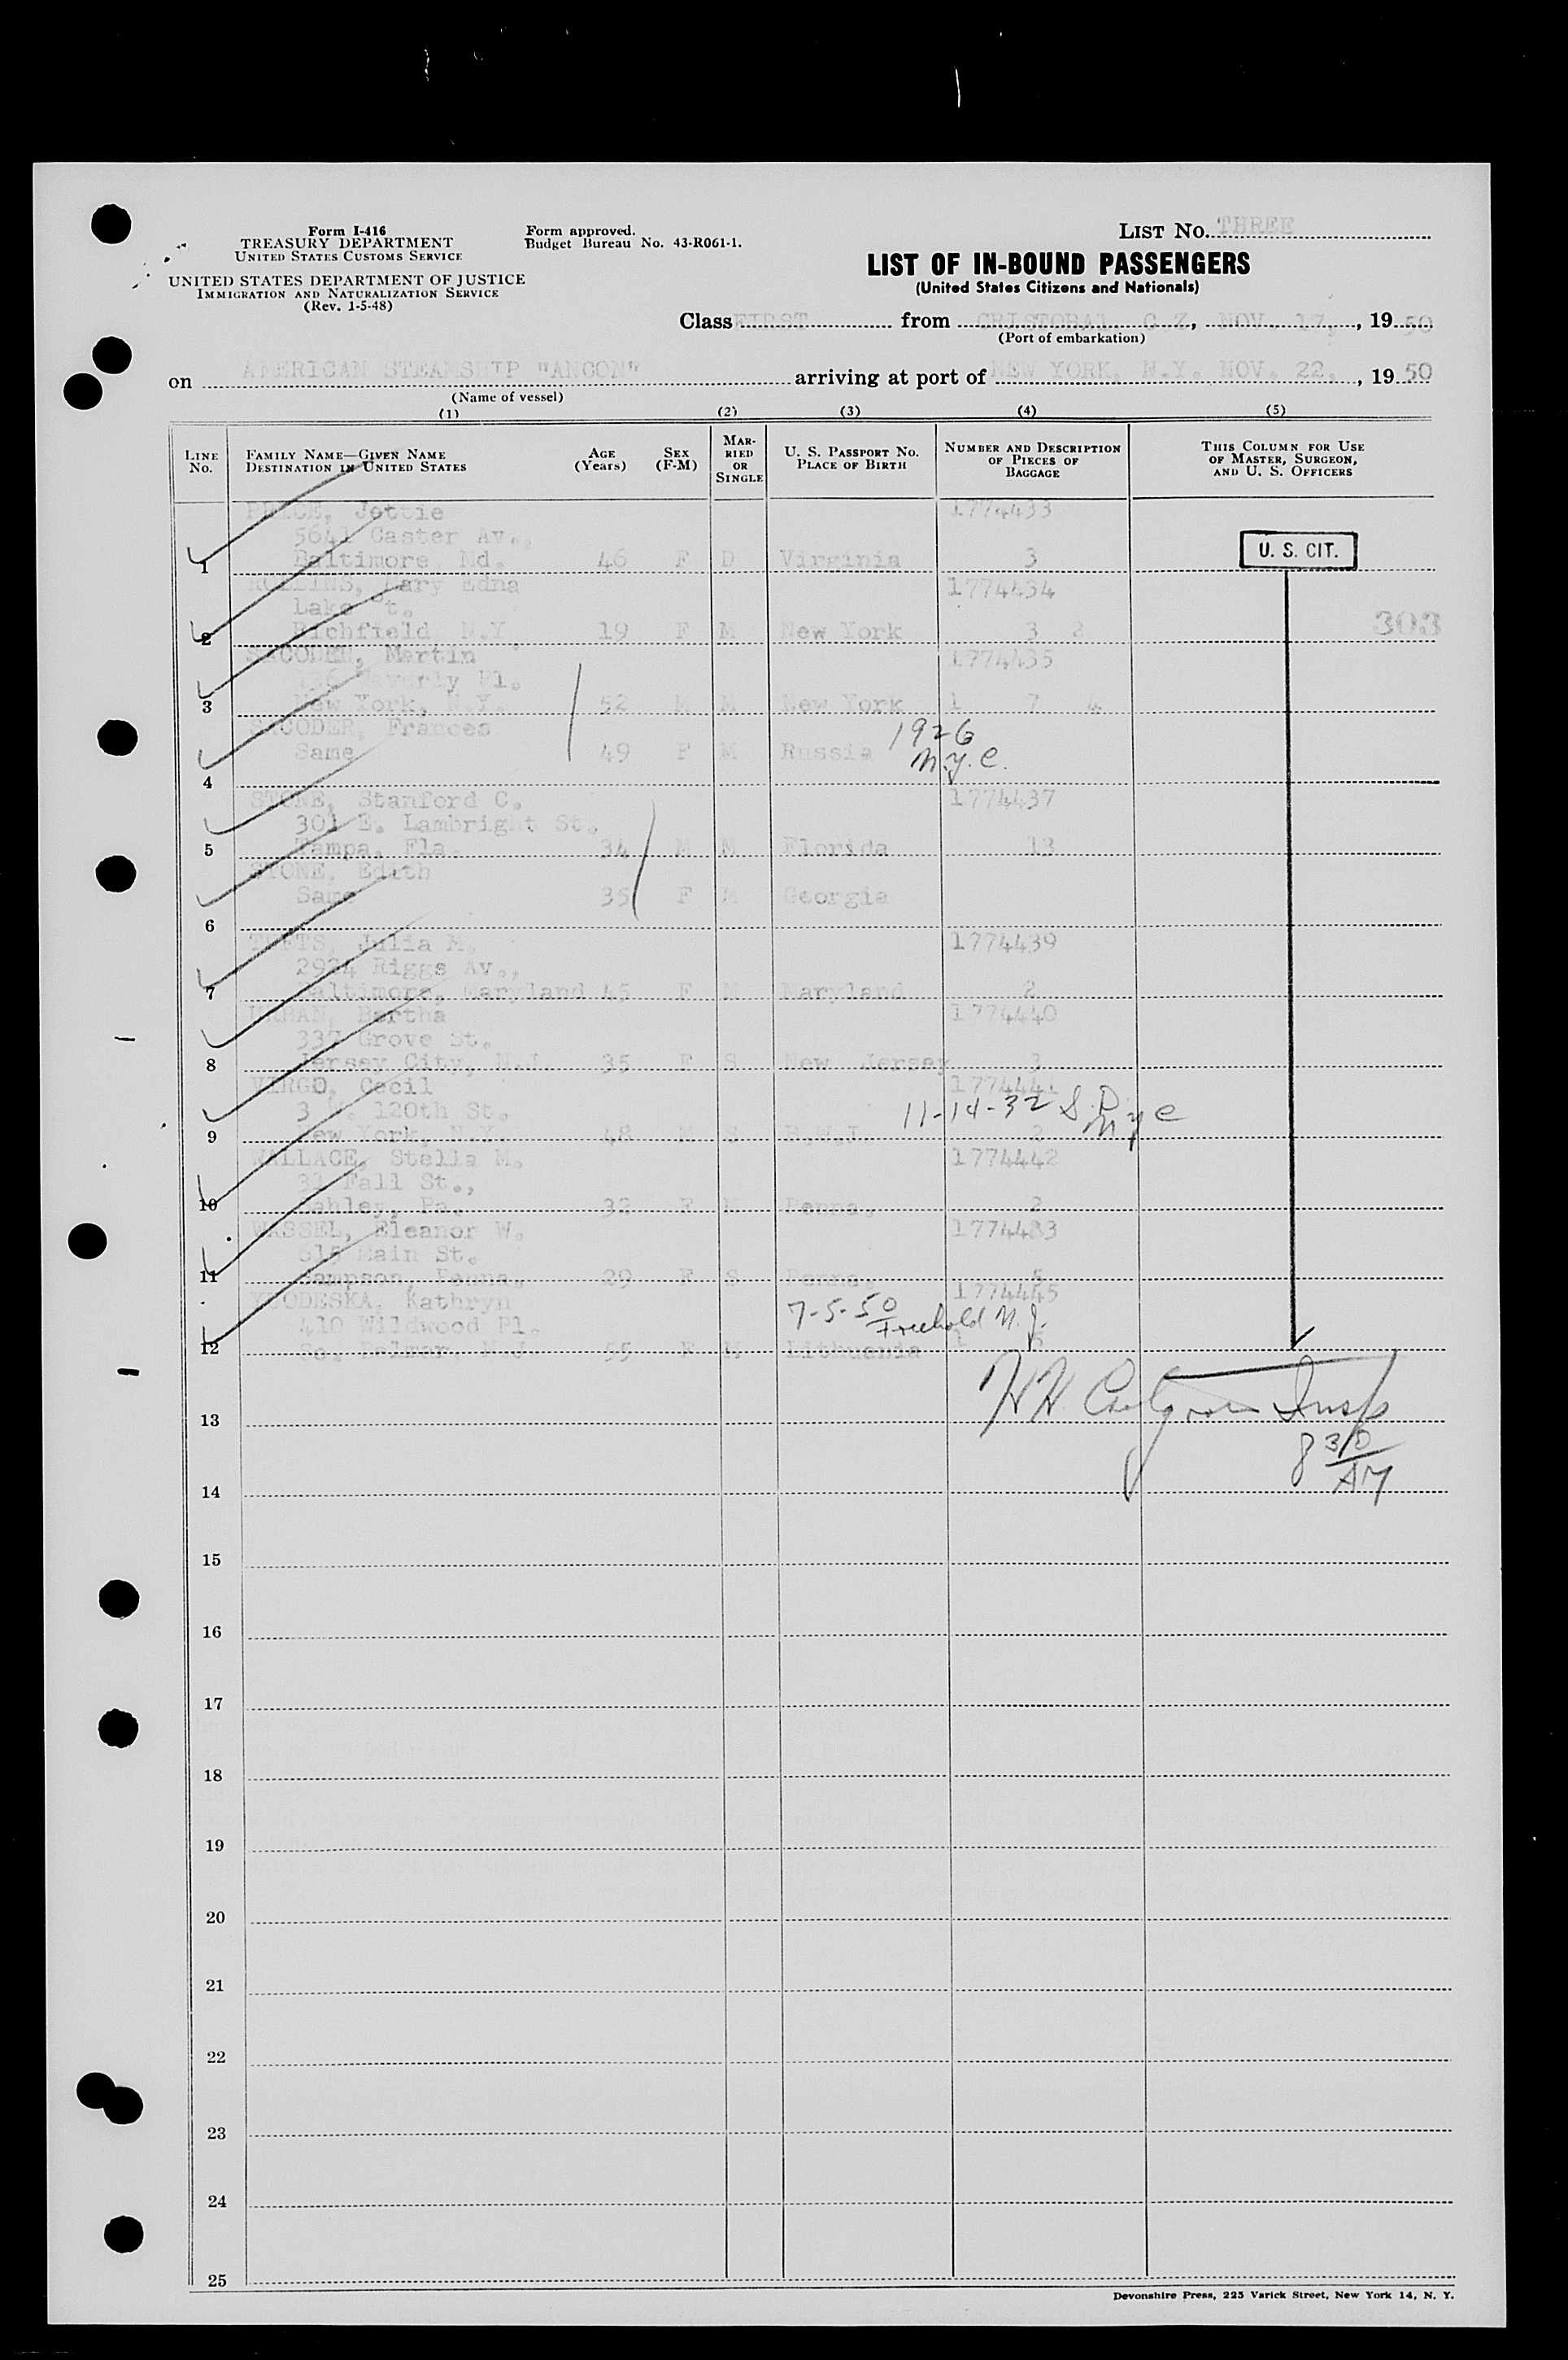 Form I-416
TREASURY DEPARTMENT
UNITED STATES CUSTOMS SERVICE
UNITED STATES DEPARTMENT OF JUSTICE
IMMIGRATION AND NATURALIZATION SERVICE
(Rev. 1-5-48)
Form approved.
Budget Bureau No. 43-R061-1.
LIST No. THREE
LIST OF IN-BOUND PASSENGERS
(United States Citizens and Nationals)
Class FIRST from CRISTOBAL, C.Z., NOV. 17, , 19 50
(Port of embarkation)
on AMERICAN STEAMSHIP "ANCON" arriving at port of NEW YORK, N.Y. NOV. 22, , 19 50
(Name of vessel)
(1) (2) (3) (4) (5)
LINE No.
FAMILY NAME—GIVEN NAME
DESTINATION IN UNITED STATES
AGE (Years)
SEX (F-M)
MARRIED OR SINGLE
U. S. PASSPORT NO.
PLACE OF BIRTH
NUMBER AND DESCRIPTION OF PIECES OF BAGGAGE
THIS COLUMN FOR USE OF MASTER, SURGEON, AND U. S. OFFICERS
PRICE, Jottie 1774433
5641 Caster Av.,
1 Baltimore, Md. 46 F D Virginia 3 U. S. CIT.
Mary Edna 1774434
Lake St.
2 Richfield N.Y 19 F M New York 3 2 303
Martin 1774435
Waverly Pl.
3 New York, N.Y. 52 M M New York 1 7 4
Frances 1926
4 Same 49 F M Russia N.Y.C.
STONE, Stanford C. 1774437
301 E. Lambright St.
5 Tampa, Fla. 34 M M Florida 13
STONE, Edith
6 Same 35 F M Georgia
TUFTS, Julia M. 1774439
2924 Riggs Av.,
7 Baltimore, Maryland 45 F M Maryland 2
URBAN, Bertha 1774440
337 Grove St.
8 Jersey City, N.J. 35 F S New Jersey 3
VIRGO, Cecil 1774441
3 W. 120th St. 11-14-32 S.D. NYC
9 New York, N.Y. 48 M S B.W.I. 2
WALLACE, Stella M. 1774442
Fall St.,
10 Pa. 32 F M Penna. 2
WASSEL, Eleanor W. 1774483
Main St.
11 Sampson, Penna. 29 F S Penna. 5
Kathryn 1774445
410 Wildwood Pl. 7-5-50 Freehold N.J.
12 So. Belmar, N.J. 55 F M Lithuania 1 5
H H Insp
13
8 30 AM
14
15
16
17
18
19
20
21
22
23
24
25
Devonshire Press, 225 Varick Street, New York 14, N. Y.